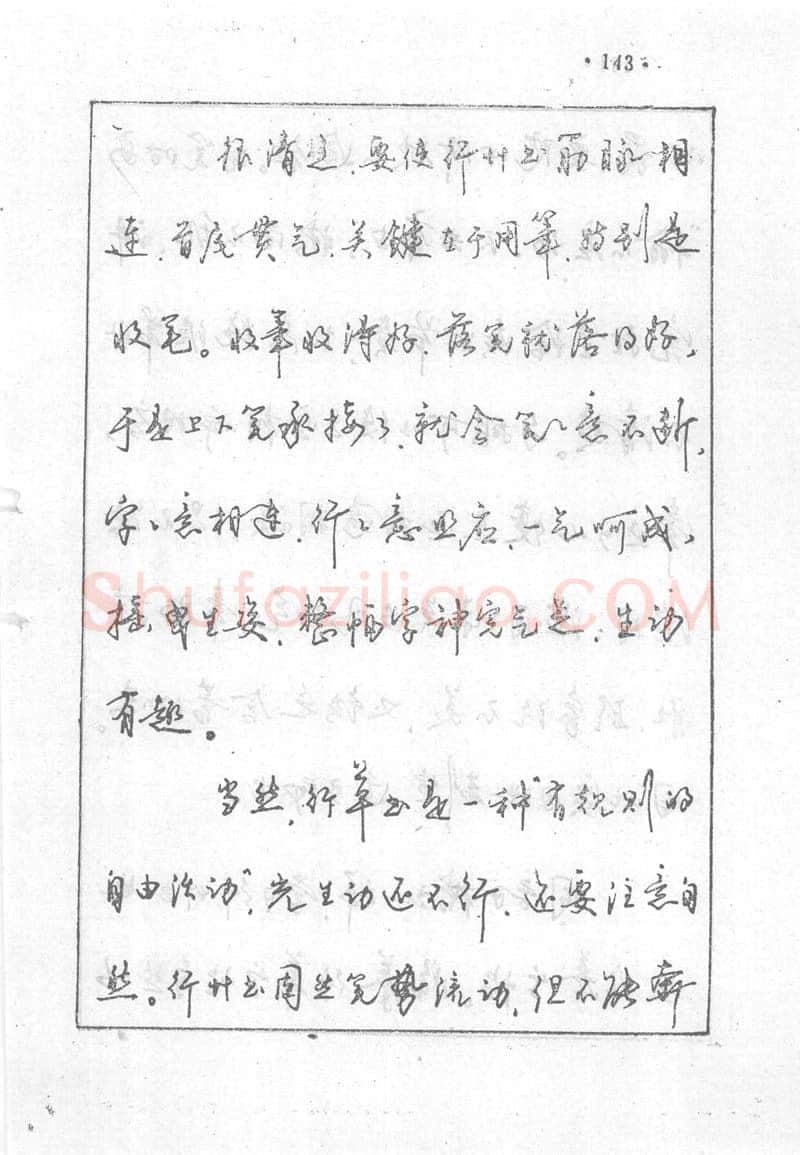 ·143·
很清楚，要使行草书筋脉相
连，首尾贯气，关键在于用笔，特别是
收笔。收笔收得好，落笔就落得好，
于是上下笔承接了，就会笔笔意不断，
字字意相连，行行意照应，一气呵成，
摇曳生姿，整幅字神完气足，生动
有趣。
当然，行草书是一种“有规则的
自由活动”，光生动还不行，还要注意自
然。行草书固然笔势流动，但不能
Shufaziliao.COM